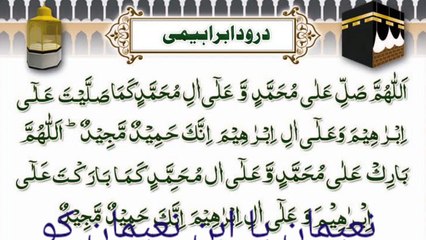 درود ابراہیمی
اَللّٰهُمَّ صَلِّ عَلٰى مُحَمَّدٍ وَّ عَلٰٓى اٰلِ مُحَمَّدٍ كَمَا صَلَّيْتَ عَلٰٓى
اِبْرٰهِيْمَ وَعَلٰٓى اٰلِ اِبْرٰهِيْمَ اِنَّكَ حَمِيْدٌ مَّجِيْدٌ ؕ اَللّٰهُمَّ
بَارِكْ عَلٰى مُحَمَّدٍ وَّ عَلٰٓى اٰلِ مُحَمَّدٍ كَمَا بَارَكْتَ عَلٰٓى
اِبْرٰهِيْمَ وَ عَلٰٓى اٰلِ اِبْرٰهِيْمَ اِنَّكَ حَمِيْدٌ مَّجِيْدٌ
نعیمان یا ابن نعیمان کو